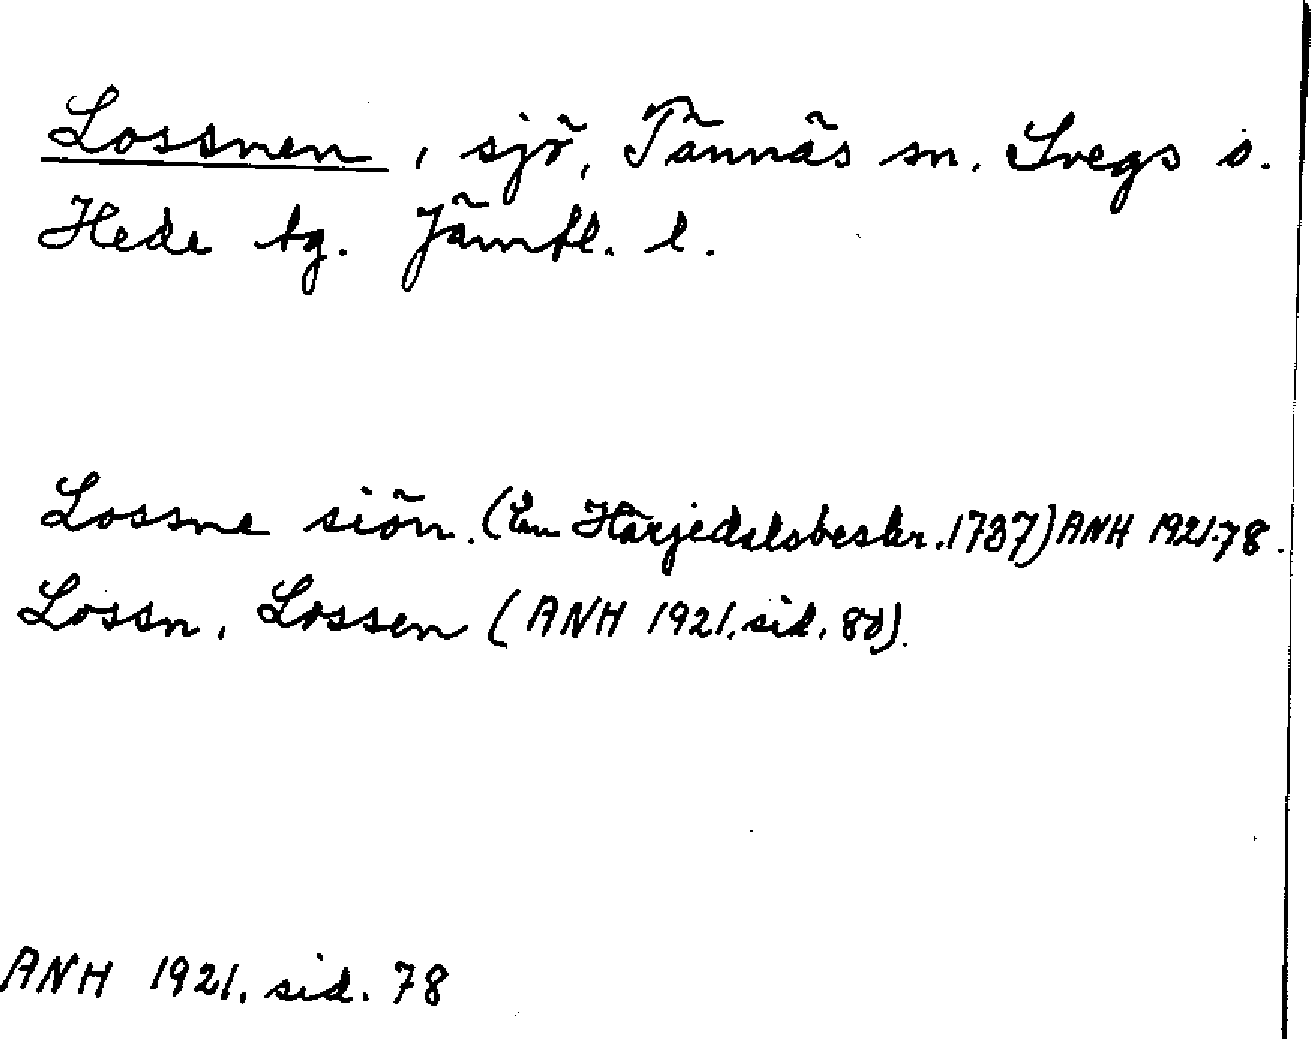 Lossnen, sjö, Tännäs sn. Svegs o.
Hede tg. Jämtl. l.
Lossne siön. (En Härjedalsbeskr. 1737) ANH 1921.78.
Lossn, Lossen (ANH 1921. sid. 80).
ANH 1921. sid. 78